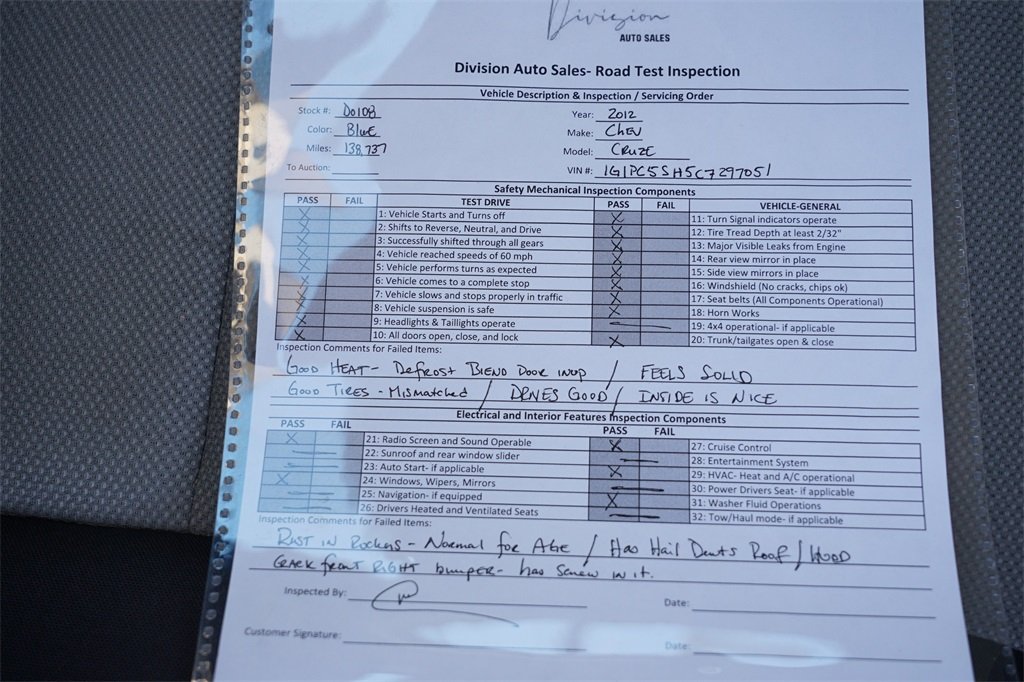 Division
AUTO SALES
Division Auto Sales- Road Test Inspection
Vehicle Description & Inspection / Servicing Order
Stock #: D0108 Year: 2012
Color: Blue Make: CHEV
Miles: 138,737 Model: CRUZE
To Auction: VIN #: 1G1PC5SH5C7297051
Safety Mechanical Inspection Components
PASS FAIL TEST DRIVE PASS FAIL VEHICLE-GENERAL
X 1: Vehicle Starts and Turns off X 11: Turn Signal indicators operate
X 2: Shifts to Reverse, Neutral, and Drive X 12: Tire Tread Depth at least 2/32"
X 3: Successfully shifted through all gears X 13: Major Visible Leaks from Engine
X 4: Vehicle reached speeds of 60 mph X 14: Rear view mirror in place
X 5: Vehicle performs turns as expected X 15: Side view mirrors in place
X 6: Vehicle comes to a complete stop X 16: Windshield (No cracks, chips ok)
X 7: Vehicle slows and stops properly in traffic X 17: Seat belts (All Components Operational)
X 8: Vehicle suspension is safe X 18: Horn Works
X 9: Headlights & Taillights operate 19: 4x4 operational- if applicable
X 10: All doors open, close, and lock X 20: Trunk/tailgates open & close
Inspection Comments for Failed Items:
GOOD HEAT- Defrost Blend Door inop / FEELS SOLID
GOOD TIRES - Mismatched / DRIVES GOOD / INSIDE IS NICE
Electrical and Interior Features Inspection Components
PASS FAIL PASS FAIL
X 21: Radio Screen and Sound Operable X 27: Cruise Control
22: Sunroof and rear window slider 28: Entertainment System
23: Auto Start- if applicable X 29: HVAC- Heat and A/C operational
X 24: Windows, Wipers, Mirrors 30: Power Drivers Seat- if applicable
25: Navigation- if equipped X 31: Washer Fluid Operations
26: Drivers Heated and Ventilated Seats 32: Tow/Haul mode- if applicable
Inspection Comments for Failed Items:
Rust in Rockers - Normal for Age / Has Hail Dents Roof / HOOD
Crack front RIGHT bumper- has screw in it.
Inspected By: Date:
Customer Signature: Date: